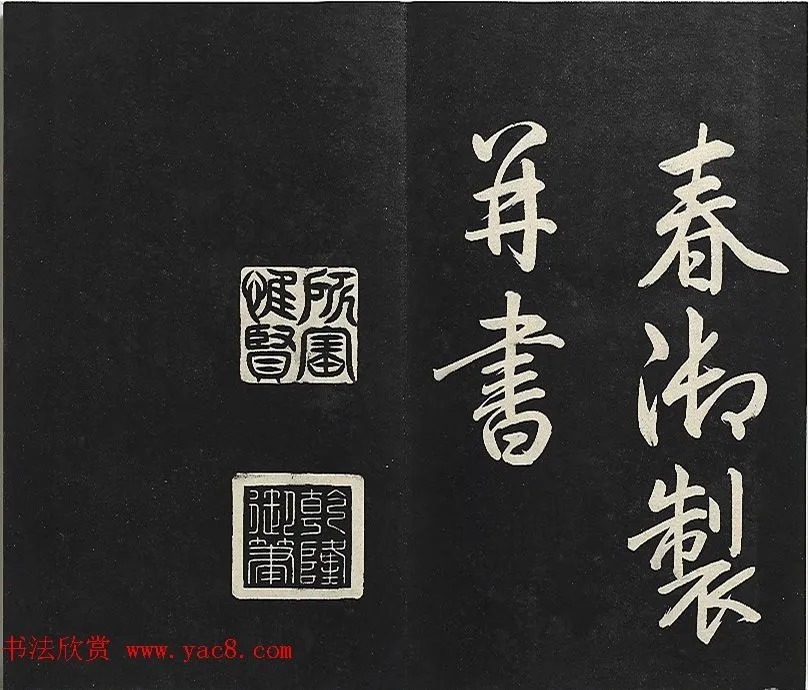 春御製
并書
所寶惟賢
乾隆御筆
书法欣赏 www.yac8.com